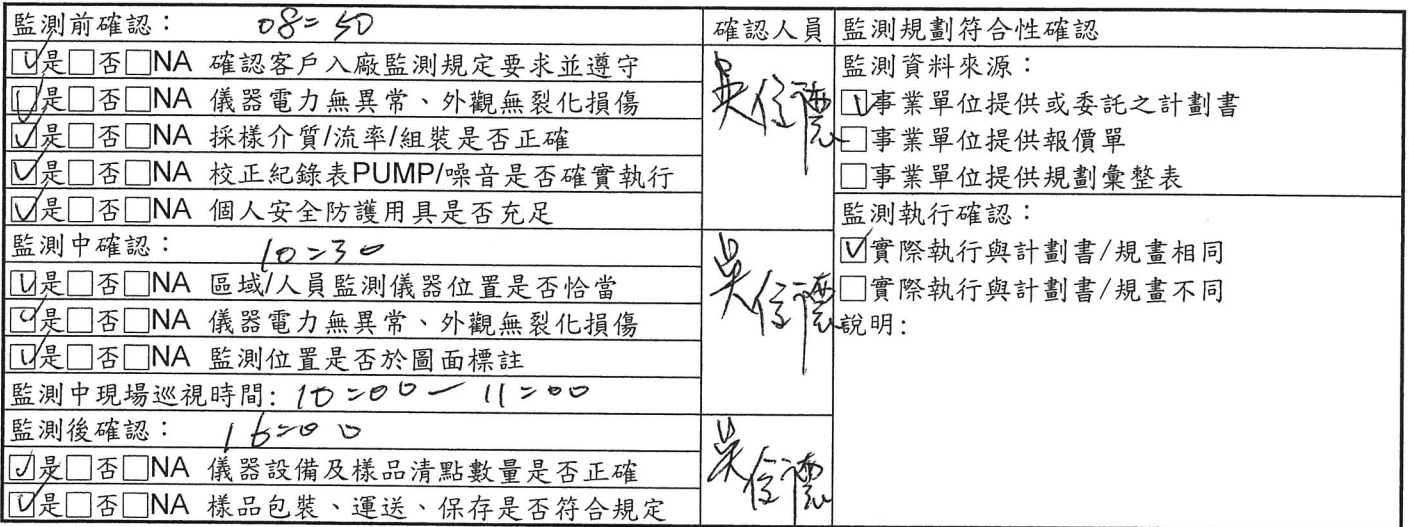 監測前確認： 08:50
☑是☐否☐NA 確認客戶入廠監測規定要求並遵守
☑是☐否☐NA 儀器電力無異常、外觀無裂化損傷
☑是☐否☐NA 採樣介質/流率/組裝是否正確
☑是☐否☐NA 校正紀錄表PUMP/噪音是否確實執行
☑是☐否☐NA 個人安全防護用具是否充足
監測中確認： 10:30
☑是☐否☐NA 區域/人員監測儀器位置是否恰當
☑是☐否☐NA 儀器電力無異常、外觀無裂化損傷
☑是☐否☐NA 監測位置是否於圖面標註
監測中現場巡視時間: 10:00 - 11:00
監測後確認： 16:00
☑是☐否☐NA 儀器設備及樣品清點數量是否正確
☑是☐否☐NA 樣品包裝、運送、保存是否符合規定
確認人員
監測規劃符合性確認
監測資料來源：
☑事業單位提供或委託之計劃書
☐事業單位提供報價單
☐事業單位提供規劃彙整表
監測執行確認：
☑實際執行與計劃書/規畫相同
☐實際執行與計劃書/規畫不同
說明: